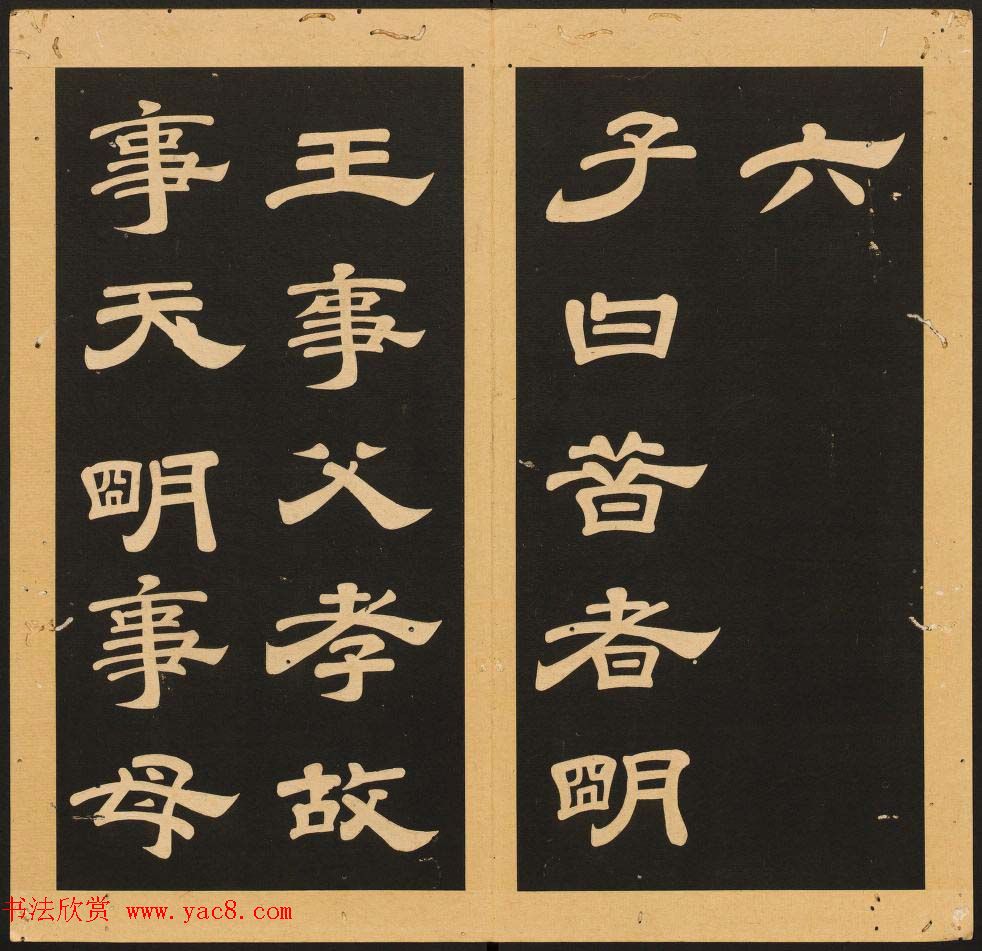 六
子曰昔者明
王事父孝故
事天明事母
书法欣赏 www.yac8.com